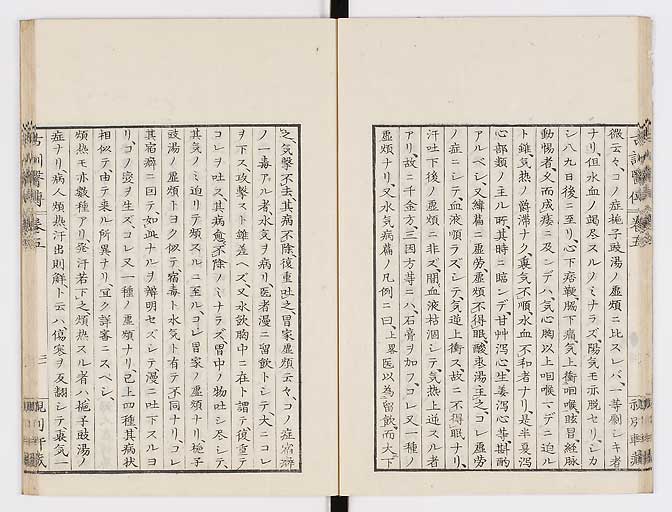 微云々、コノ症梔子豉湯ノ虚煩ニ比スレバ、一等劇シキ者
ナリ、但氷血ノ竭尽スルノミナラズ、陽気モ亦脱セリ、シカ
シ八九日後ニ至リ、心下痞鞕、脇下痛、気上衝咽喉、眩冒、経脉
動惕者、久而成痿ニ及ンデハ、気心胸以上咽喉マデニ迫ル
ト雖、気熱ノ爵滞ナク、裏気不順、水血不和者ナリ、是半夏瀉
心部類ノ主ル所、其時ニ臨ンデ甘艸瀉心、生姜瀉心等、斟酌
アルベシ、又 篇ニ虚労虚煩不得眠、酸棗湯主之、コレ虚労
ノ症ニシテ、血液順ラズシテ、気逆上衝ス、故ニ不得眠ナリ、
汗吐下後ノ虚煩ニ非ズ、関血液枯涸シテ、気熱上逆スル者
アリ、故ニ千金方、三因方等ニハ、石膏ヲ加フ、コレ又一種ノ
虚煩ナリ、又水気病篇ノ凡例ニ曰、上略医以為留飲而大下
之、気撃不去、其病不除、後重吐之、胃家虚煩云々、コノ症宿癖
ノ一毒アル者、水気ヲ病リ、医者漫ニ留飲トシテ、大ニコレ
ヲ下ス、攻撃スト雖差ヘズ、又水飲胸中ニ在ト謂テ後重テ
コレヲ吐ス、其病愈不除ノミナラズ、胃中ノ物吐シ尽シテ、
其気ノミ迫リテ煩スルニ至ル、コレ胃家ノ虚煩ナリ、梔子
豉湯ノ虚煩トヨク似テ、宿毒ト水気ト有テ不同ナリ、コレ
其宿癖ニ因テ如此ナルヲ辨明セズシテ、漫ニ吐下スルヨ
リ、コノ変ヲ生ズ、コレ又一種ノ虚煩ナリ、已上四種其病状
相似テ、由テ来ル所異ナリ、宜ク詳審ニスベシ、
煩熱モ亦数種アリ、発汗若下之、煩熱スル者ハ、梔子豉湯ノ
症ナリ、病人煩熱、汗出則解ト云ハ、傷寒ヲ反翻シテ、裏気一
古訓医傳 巻五
三